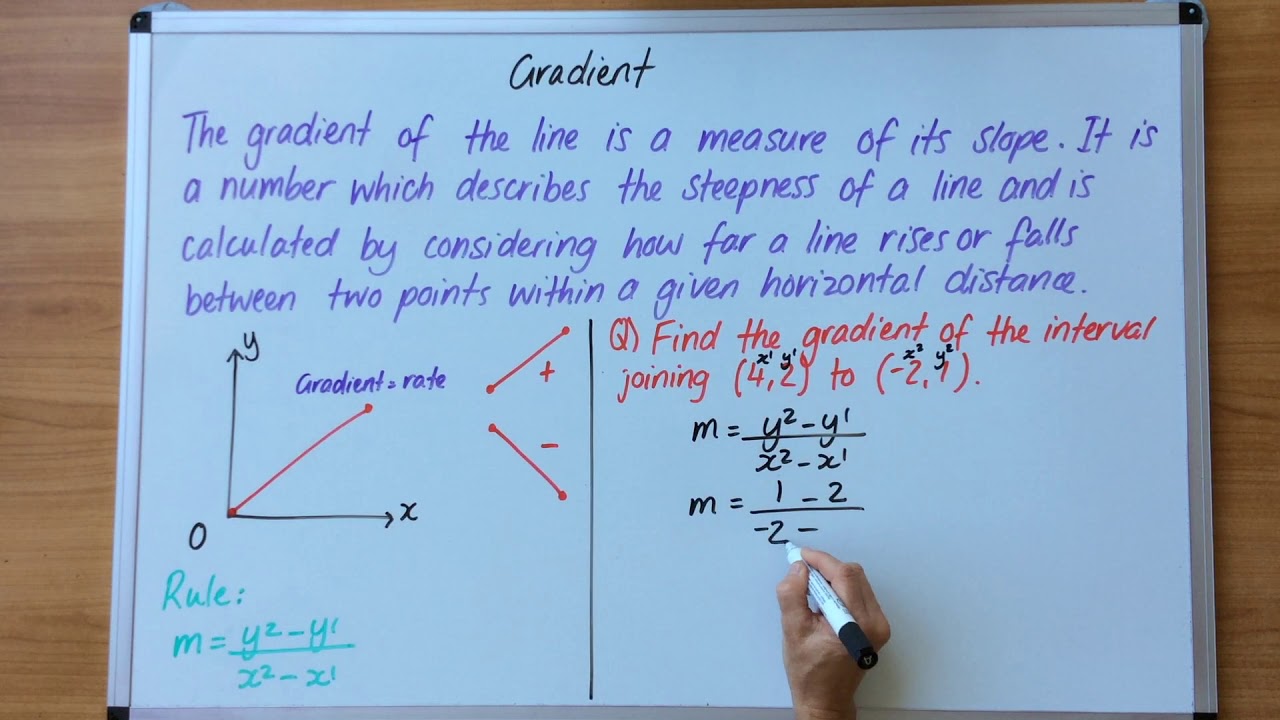 Gradient
The gradient of the line is a measure of its slope. It is
a number which describes the steepness of a line and is
calculated by considering how far a line rises or falls
between two points within a given horizontal distance.
y
Gradient = rate
+
−
x
O
Rule:
m = y² - y¹
x² - x¹
Q) Find the gradient of the interval
x¹ y¹ x² y²
joining (4,2) to (-2,1).
m = y² - y¹
x² - x¹
m = 1 - 2
-2 -